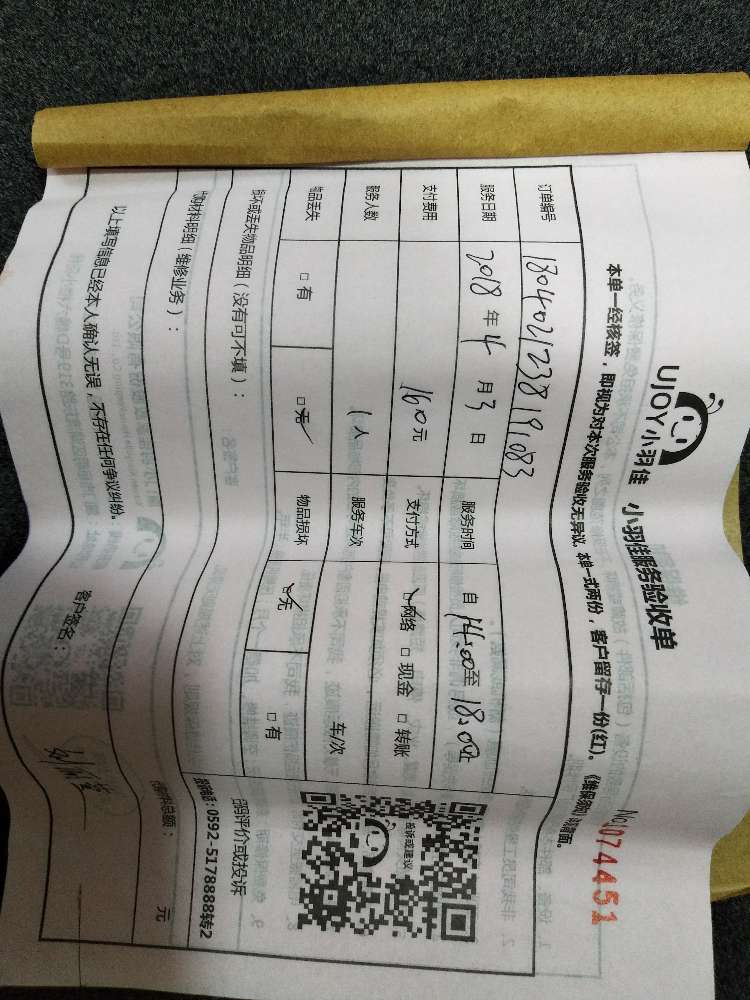 UJOY小羽佳 小羽佳服务验收单
No.1074451
本单一经核签，即视为对本次服务验收无异议 本单一式两份，客户留存一份(红)。《维保须知》见背面。
订单编号 1804021238191083
服务日期 2018年4月3日 服务时间 自14:00至18:00止
支付费用 160元 支付方式 网络 现金 转账
服务人数 1人 服务车次 车/次
物品丢失 有 无 物品损坏 无 有
投诉或建议
损坏或丢失物品明细（没有可不填）：
扫码评价或投诉
投诉电话：0592-5178888转2
代购材料明细（维修业务）：
材料总额： 元
以上填写信息已经本人确认无误，不存在任何争议纠纷。
客户签名：